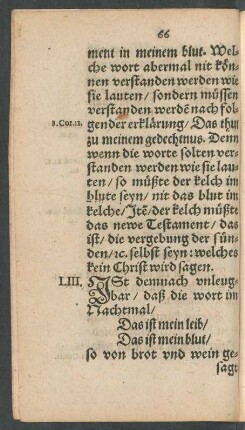 66
ment in meinem blut. Wel-
che wort abermal nit kön-
nen verstanden werden wie
sie lauten/ sondern müssen
verstanden werdē nach fol-
1. Cor. 11. gender erklärung/ Das thut
zu meinem gedechtnus. Denn
wenn die worte solten ver-
standen werden wie sie lau-
ten/ so müßte der kelch im
blute seyn/ nit das blut im
kelche/ Itē/ der kelch müßte
das newe Testament/ das
ist/ die vergebung der sün-
den/ ꝛc. selbst seyn: welches
kein Christ wird sagen.
LIII. ISt demnach vnleug-
bar/ daß die wort im
Nachtmal/
Das ist mein leib/
Das ist mein blut/
so von brot vnd wein ge-
sagt